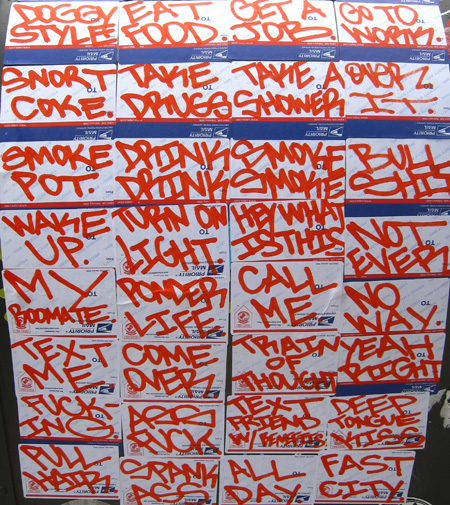 DOGGY
STYLE.
EAT
FOOD.
GET A
JOB.
GO TO
WORK.
SNORT
COKE.
TAKE
DRUGS
TAKE A
SHOWER
OVER
IT.
SMOKE
POT.
DRINK
DRINK
SMOKE
SMOKE
BULL
SHIT
WAKE
UP.
TURN ON
LIGHT.
HEY WHAT
IS THIS
NOT
EVER
MY
ROOMATE
PONDER
LIFE
CALL
ME
NO
WAY.
TEXT
ME
COME
OVER
TRAIN
OF
THOUGHT
YEAH
RIGHT
FUCK
ING
TEXT
FRIEND
W/ BENEFITS
DEEP
TONGUE
KISS
PULL
HAIR
SPANK
ASS
ALL
DAY
FAST
CITY.
PRIORITY
MAIL
TO